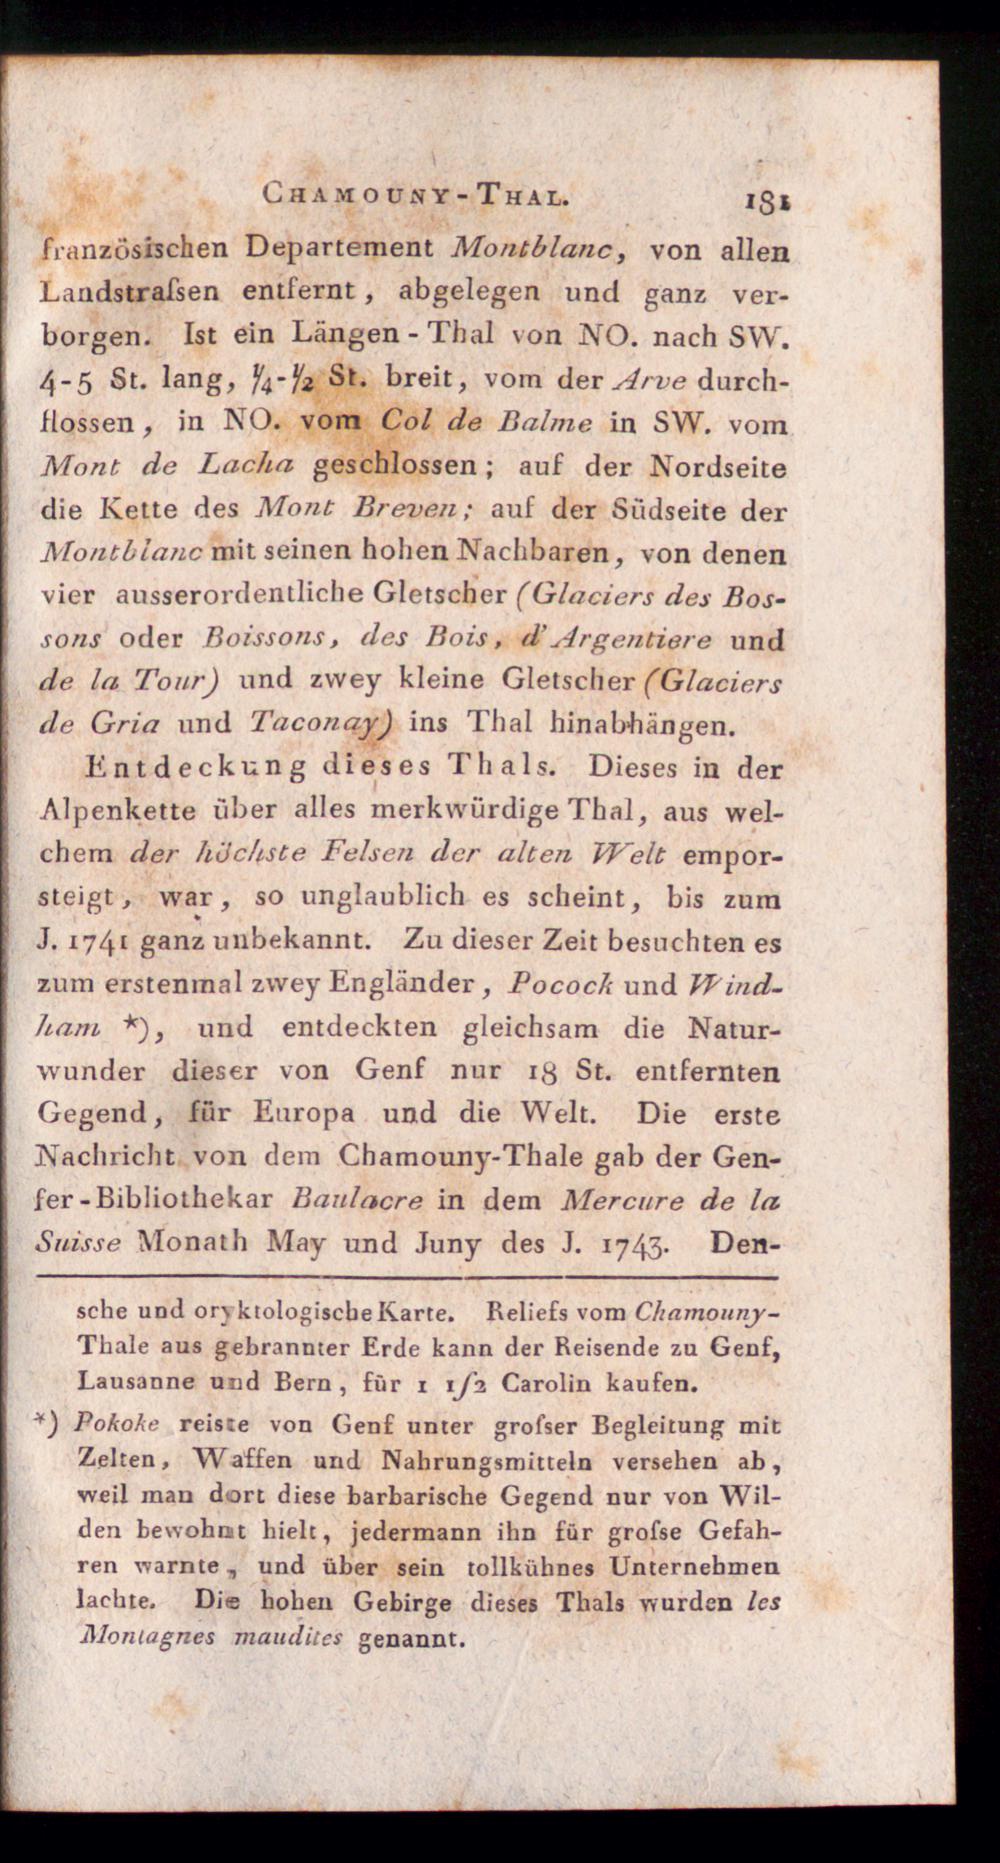 CHAMOUNY-THAL. 181
französischen Departement Montblanc, von allen
Landstraſsen entfernt, abgelegen und ganz ver-
borgen. Ist ein Längen-Thal von NO. nach SW.
4-5 St. lang, ¼-½ St. breit, vom der Arve durch-
flossen, in NO. vom Col de Balme in SW. vom
Mont de Lacha geschlossen; auf der Nordseite
die Kette des Mont Breven; auf der Südseite der
Montblanc mit seinen hohen Nachbaren, von denen
vier ausserordentliche Gletscher (Glaciers des Bos-
sons oder Boissons, des Bois, d'Argentiere und
de la Tour) und zwey kleine Gletscher (Glaciers
de Gria und Taconay) ins Thal hinabhängen.
Entdeckung dieses Thals. Dieses in der
Alpenkette über alles merkwürdige Thal, aus wel-
chem der höchste Felsen der alten Welt empor-
steigt, war, so unglaublich es scheint, bis zum
J. 1741 ganz unbekannt. Zu dieser Zeit besuchten es
zum erstenmal zwey Engländer, Pocock und Wind-
ham *), und entdeckten gleichsam die Natur-
wunder dieser von Genf nur 18 St. entfernten
Gegend, für Europa und die Welt. Die erste
Nachricht von dem Chamouny-Thale gab der Gen-
fer-Bibliothekar Baulacre in dem Mercure de la
Suisse Monath May und Juny des J. 1743. Den-
sche und oryktologische Karte. Reliefs vom Chamouny-
Thale aus gebrannter Erde kann der Reisende zu Genf,
Lausanne und Bern, für 1 1/2 Carolin kaufen.
*) Pokoke reiste von Genf unter groſser Begleitung mit
Zelten, Waffen und Nahrungsmitteln versehen ab,
weil man dort diese barbarische Gegend nur von Wil-
den bewohnt hielt, jedermann ihn für groſse Gefah-
ren warnte, und über sein tollkühnes Unternehmen
lachte. Die hohen Gebirge dieses Thals wurden les
Montagnes maudites genannt.